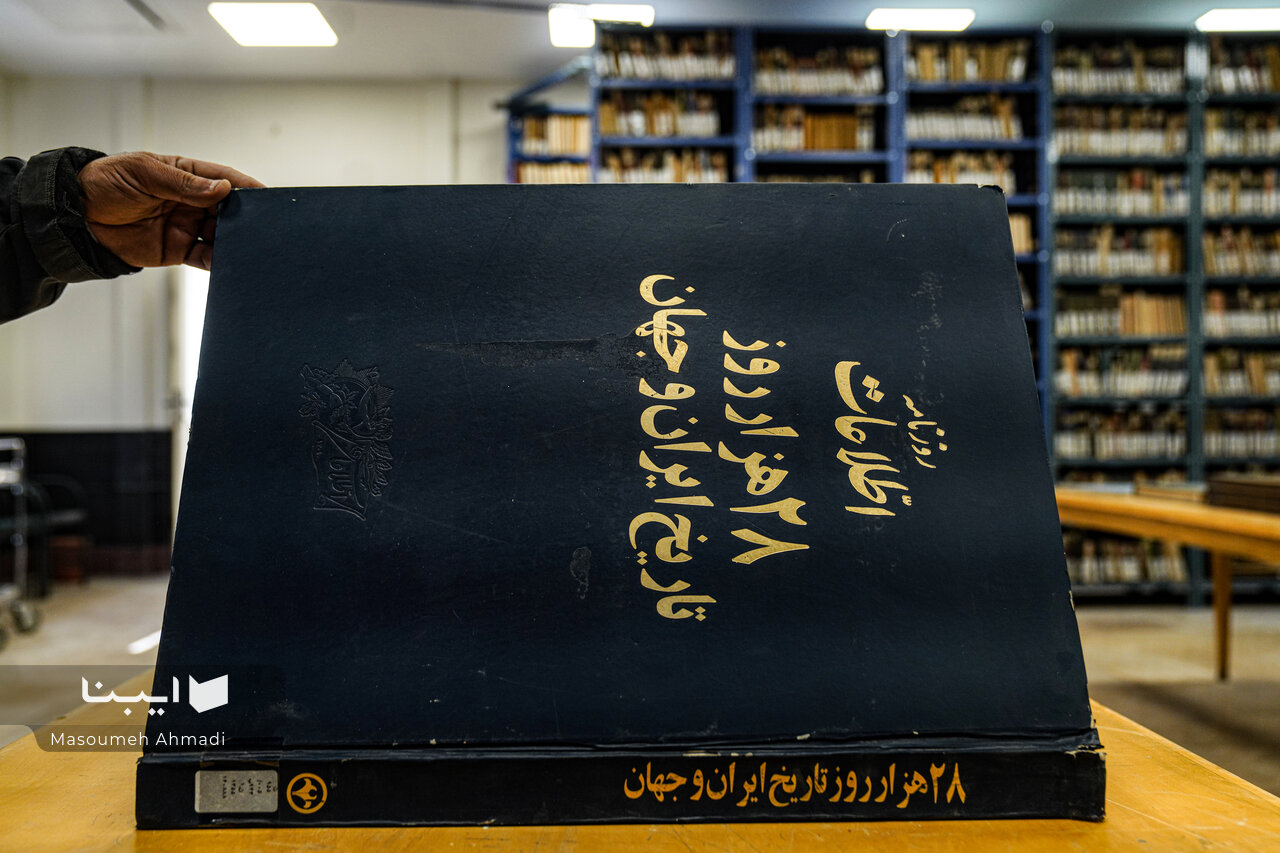 روزنامه
اطّلاعات
۲۸ هزار روز
تاریخ ایران و جهان
۲۸ هزار روز تاریخ ایران و جهان
ایبنا
Masoumeh Ahmadi